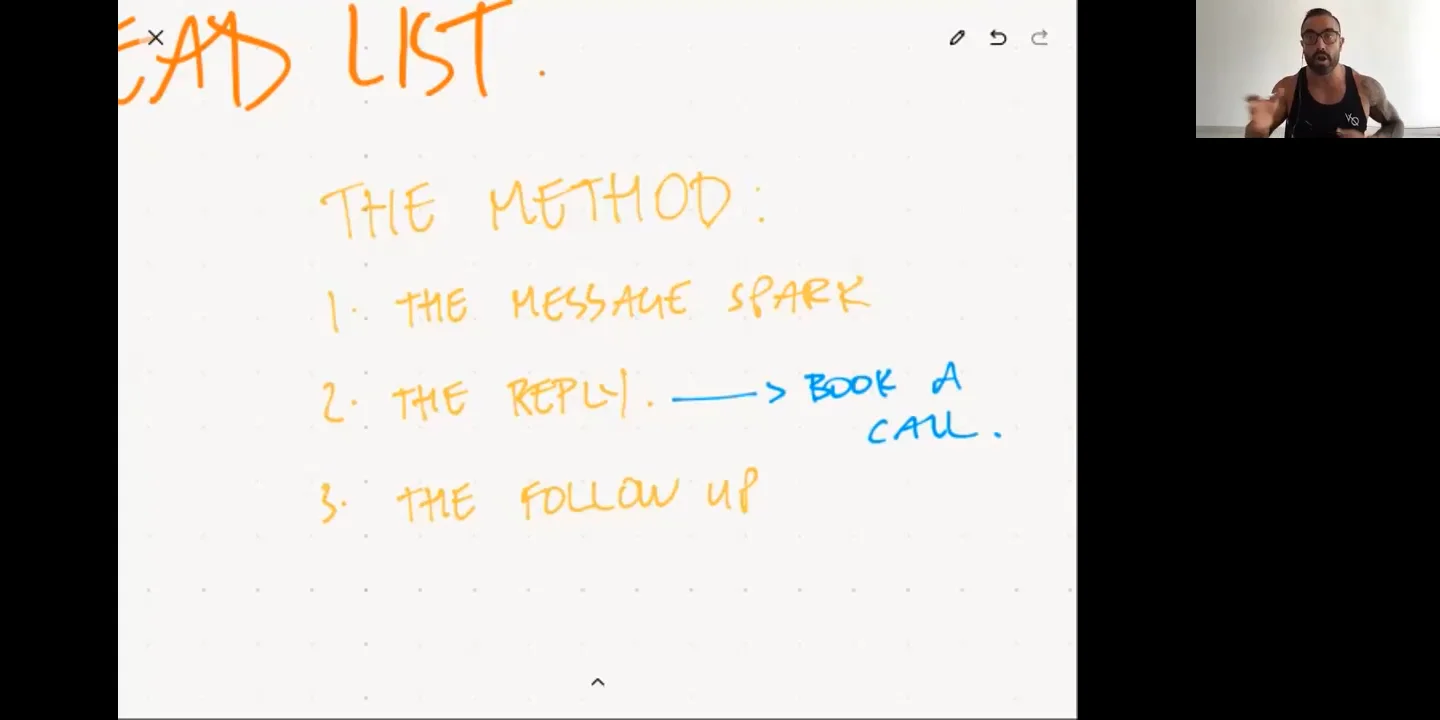 EAD LIST.
THE METHOD:
1. THE MESSAGE SPARK
2. THE REPLY. → BOOK A
CALL.
3. THE FOLLOW UP